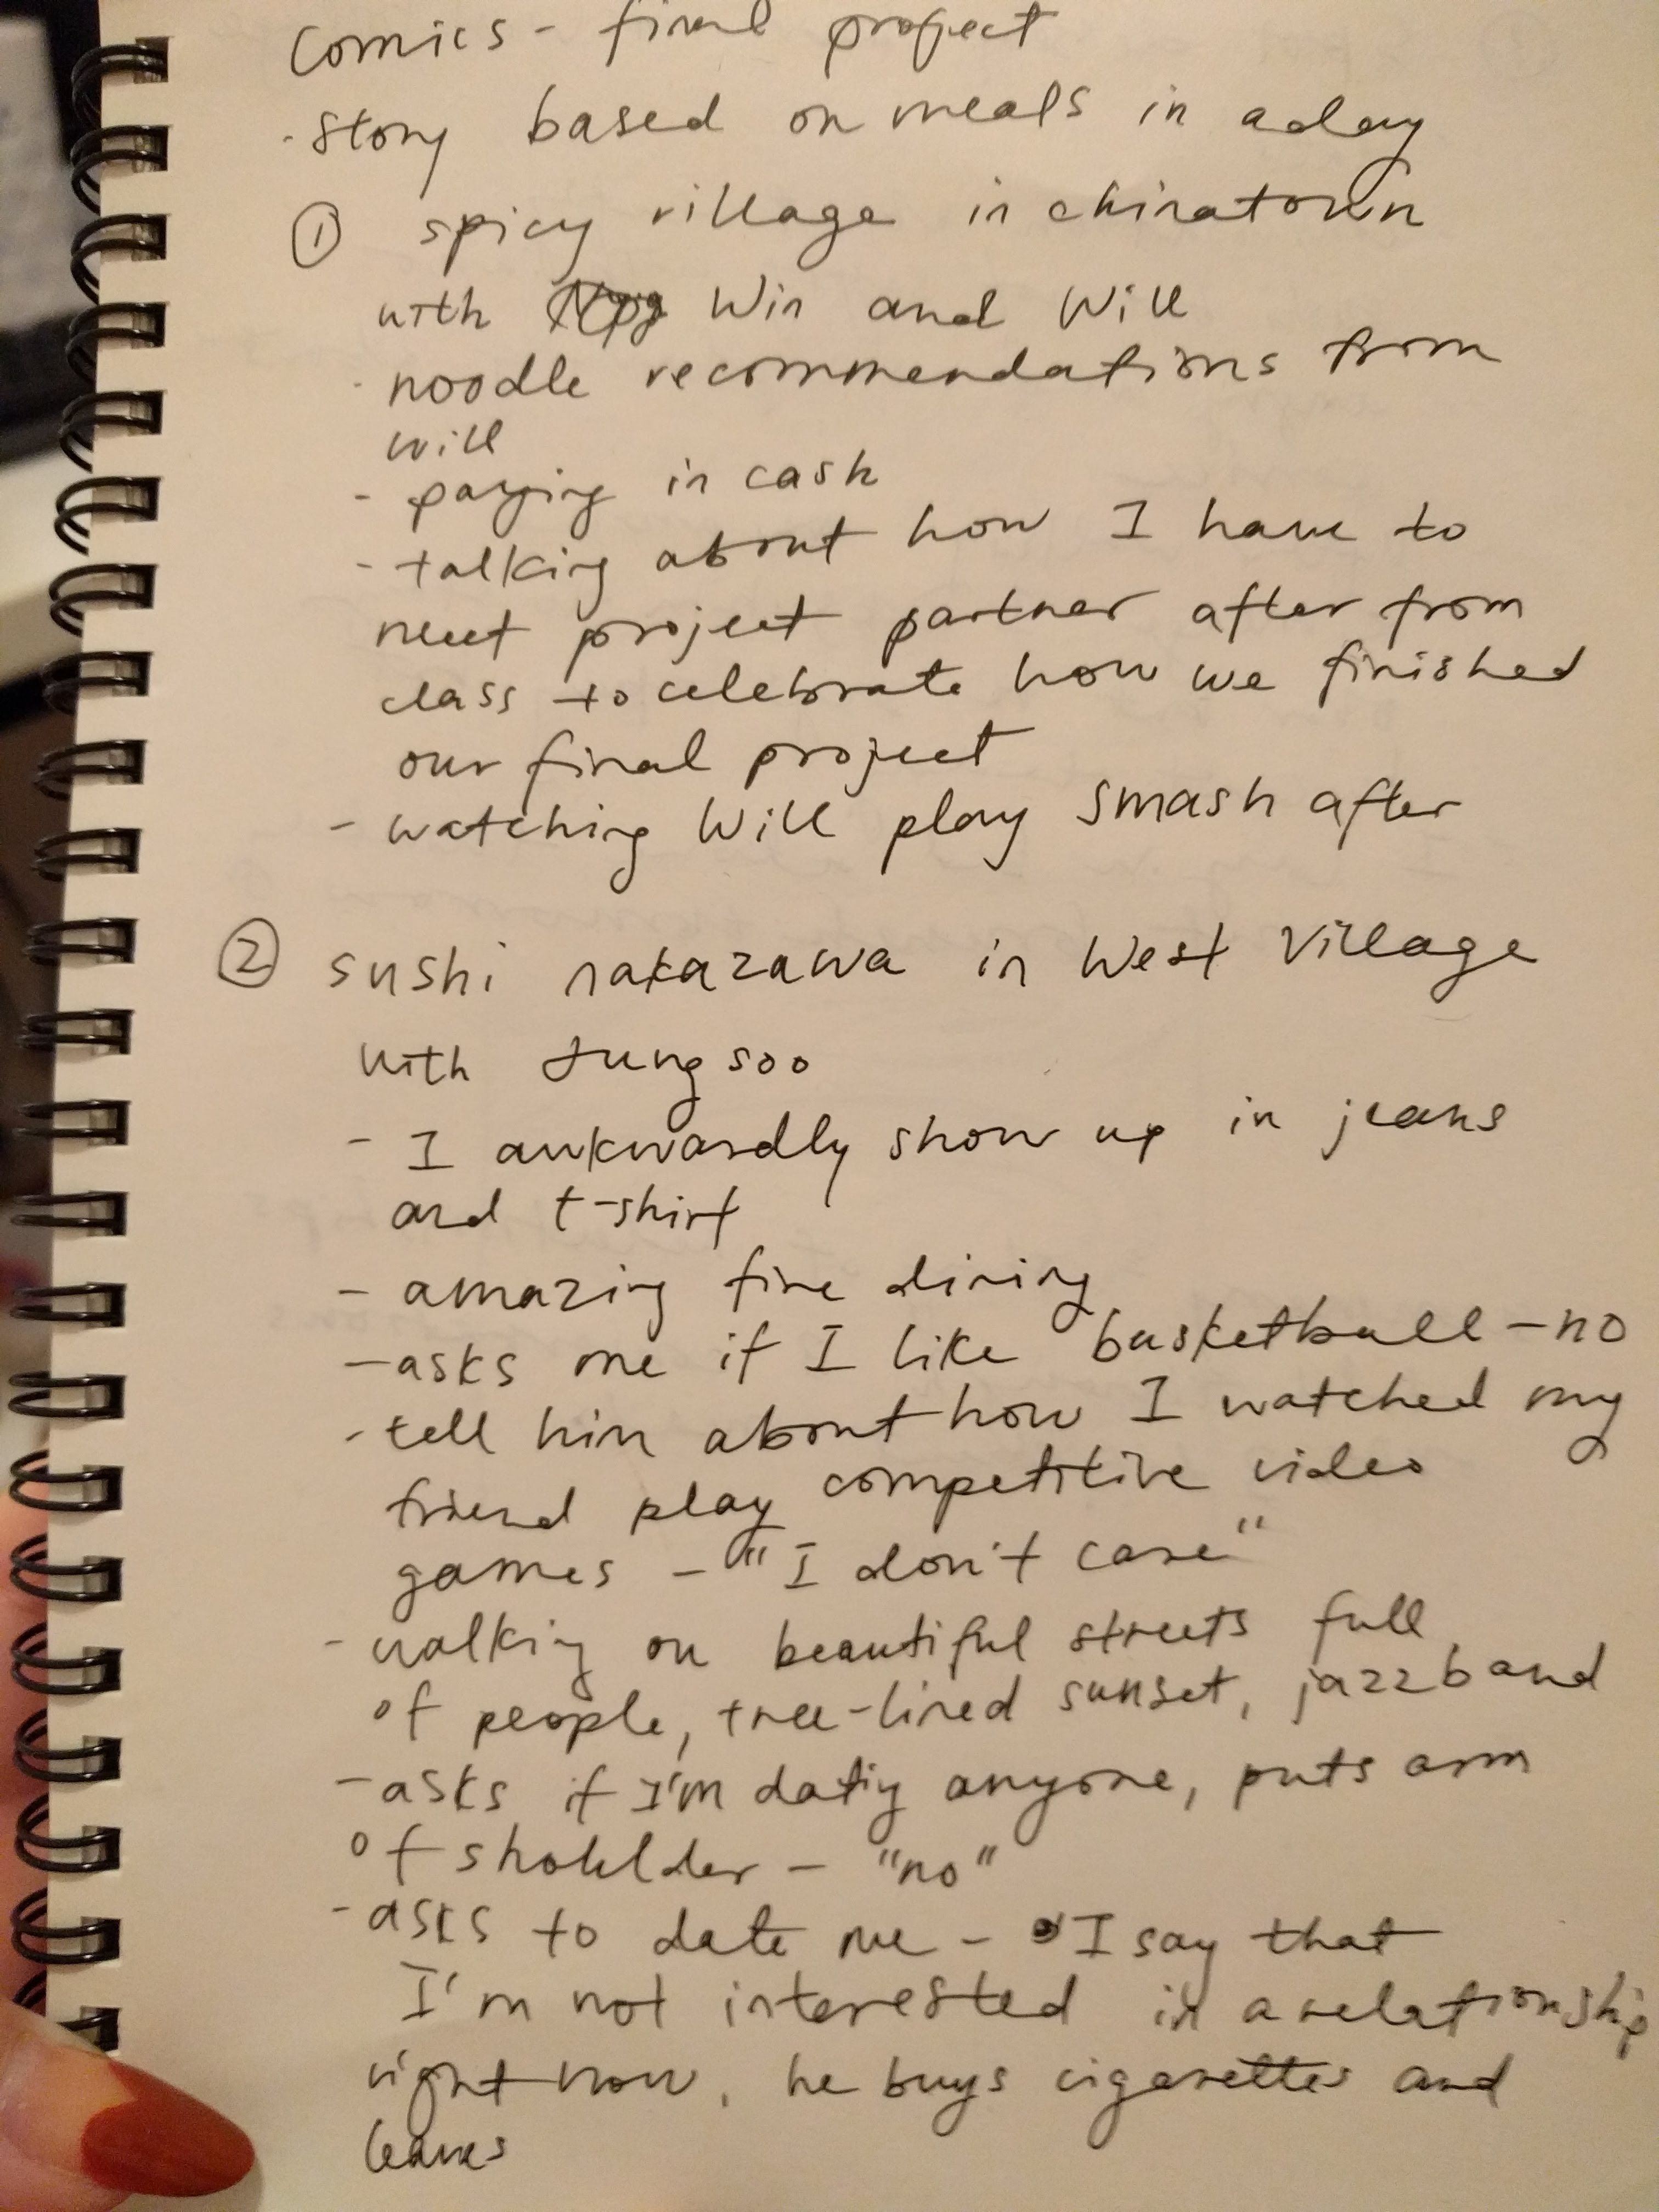 Comics - final project
- story based on meals in a day
① spicy village in chinatown
with Win and Will
- noodle recommendations from
will
- paying in cash
- talking about how I have to
meet project partner after from
class to celebrate how we finished
our final project
- watching Will play smash after
② sushi nakazawa in West Village
with Jungsoo
- I awkwardly show up in jeans
and t-shirt
- amazing fine dining
- asks me if I like basketball - no
- tell him about how I watched my
friend play competitive video
games - "I don't care"
- walking on beautiful streets full
of people, tree-lined sunset, jazz band
- asks if I'm dating anyone, puts arm
of shoulder - "no"
- asks to date me - I say that
I'm not interested in a relationship
right now, he buys cigarettes and
leaves